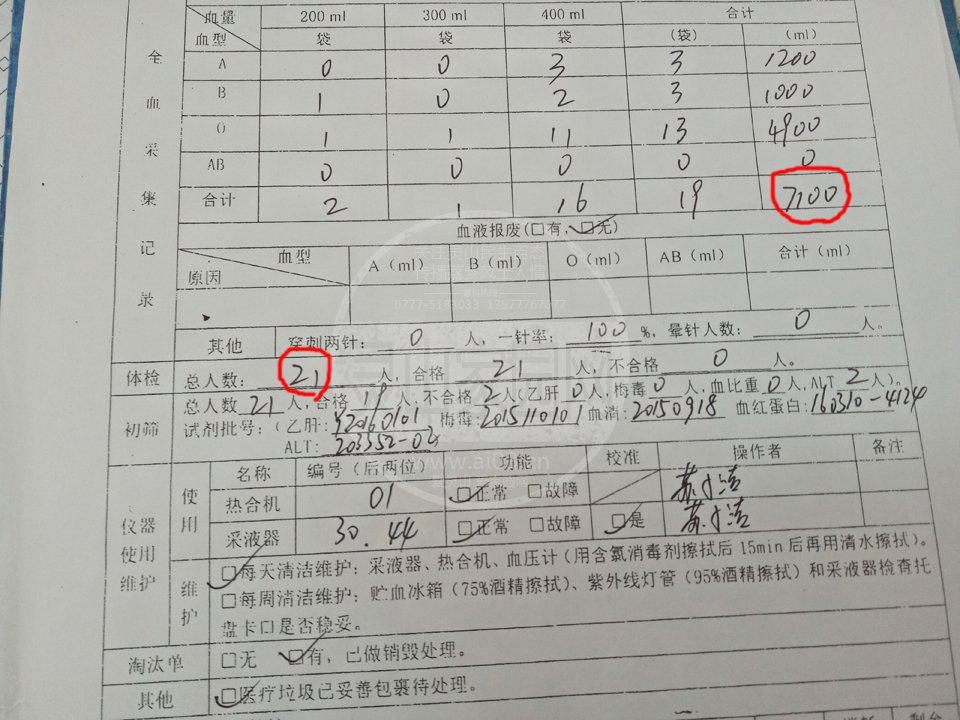 血量 200 ml 300 ml 400 ml 合计
血型 袋 袋 袋 (袋) (ml)
全血采集记录
A 0 0 3 3 1200
B 1 0 2 3 1000
O 1 1 11 13 4900
AB 0 0 0 0 0
合计 2 1 16 19 7100
血液报废(□有,□无)
血型 A(ml) B(ml) O(ml) AB(ml) 合计(ml)
原因
其他 穿刺两针: 0 人,一针率: 100 %,晕针人数: 0 人。
体检 总人数: 21 人,合格 21 人,不合格 0 人。
初筛 总人数 21 人,合格 19 人,不合格 2 人(乙肝 0 人,梅毒 0 人,血比重 0 人,ALT 2 人)。
试剂批号:(乙肝: 梅毒:2015110101 血消:20150918 血红蛋白:160310-4124
ALT: 203352-02
仪器使用维护
使用 名称 编号(后两位) 功能 校准 操作者 备注
热合机 01 □正常 □故障
采液器 30.44 □正常 □故障 □是
维护 □每天清洁维护:采液器、热合机、血压计(用含氯消毒剂擦拭后15min后再用清水擦拭)。
□每周清洁维护:贮血冰箱(75%酒精擦拭)、紫外线灯管(95%酒精擦拭)和采液器检查托
盘卡口是否稳妥。
淘汰单 □无 □有,已做销毁处理。
其他 □医疗垃圾已妥善包裹待处理。
0777-5188033 13977767077